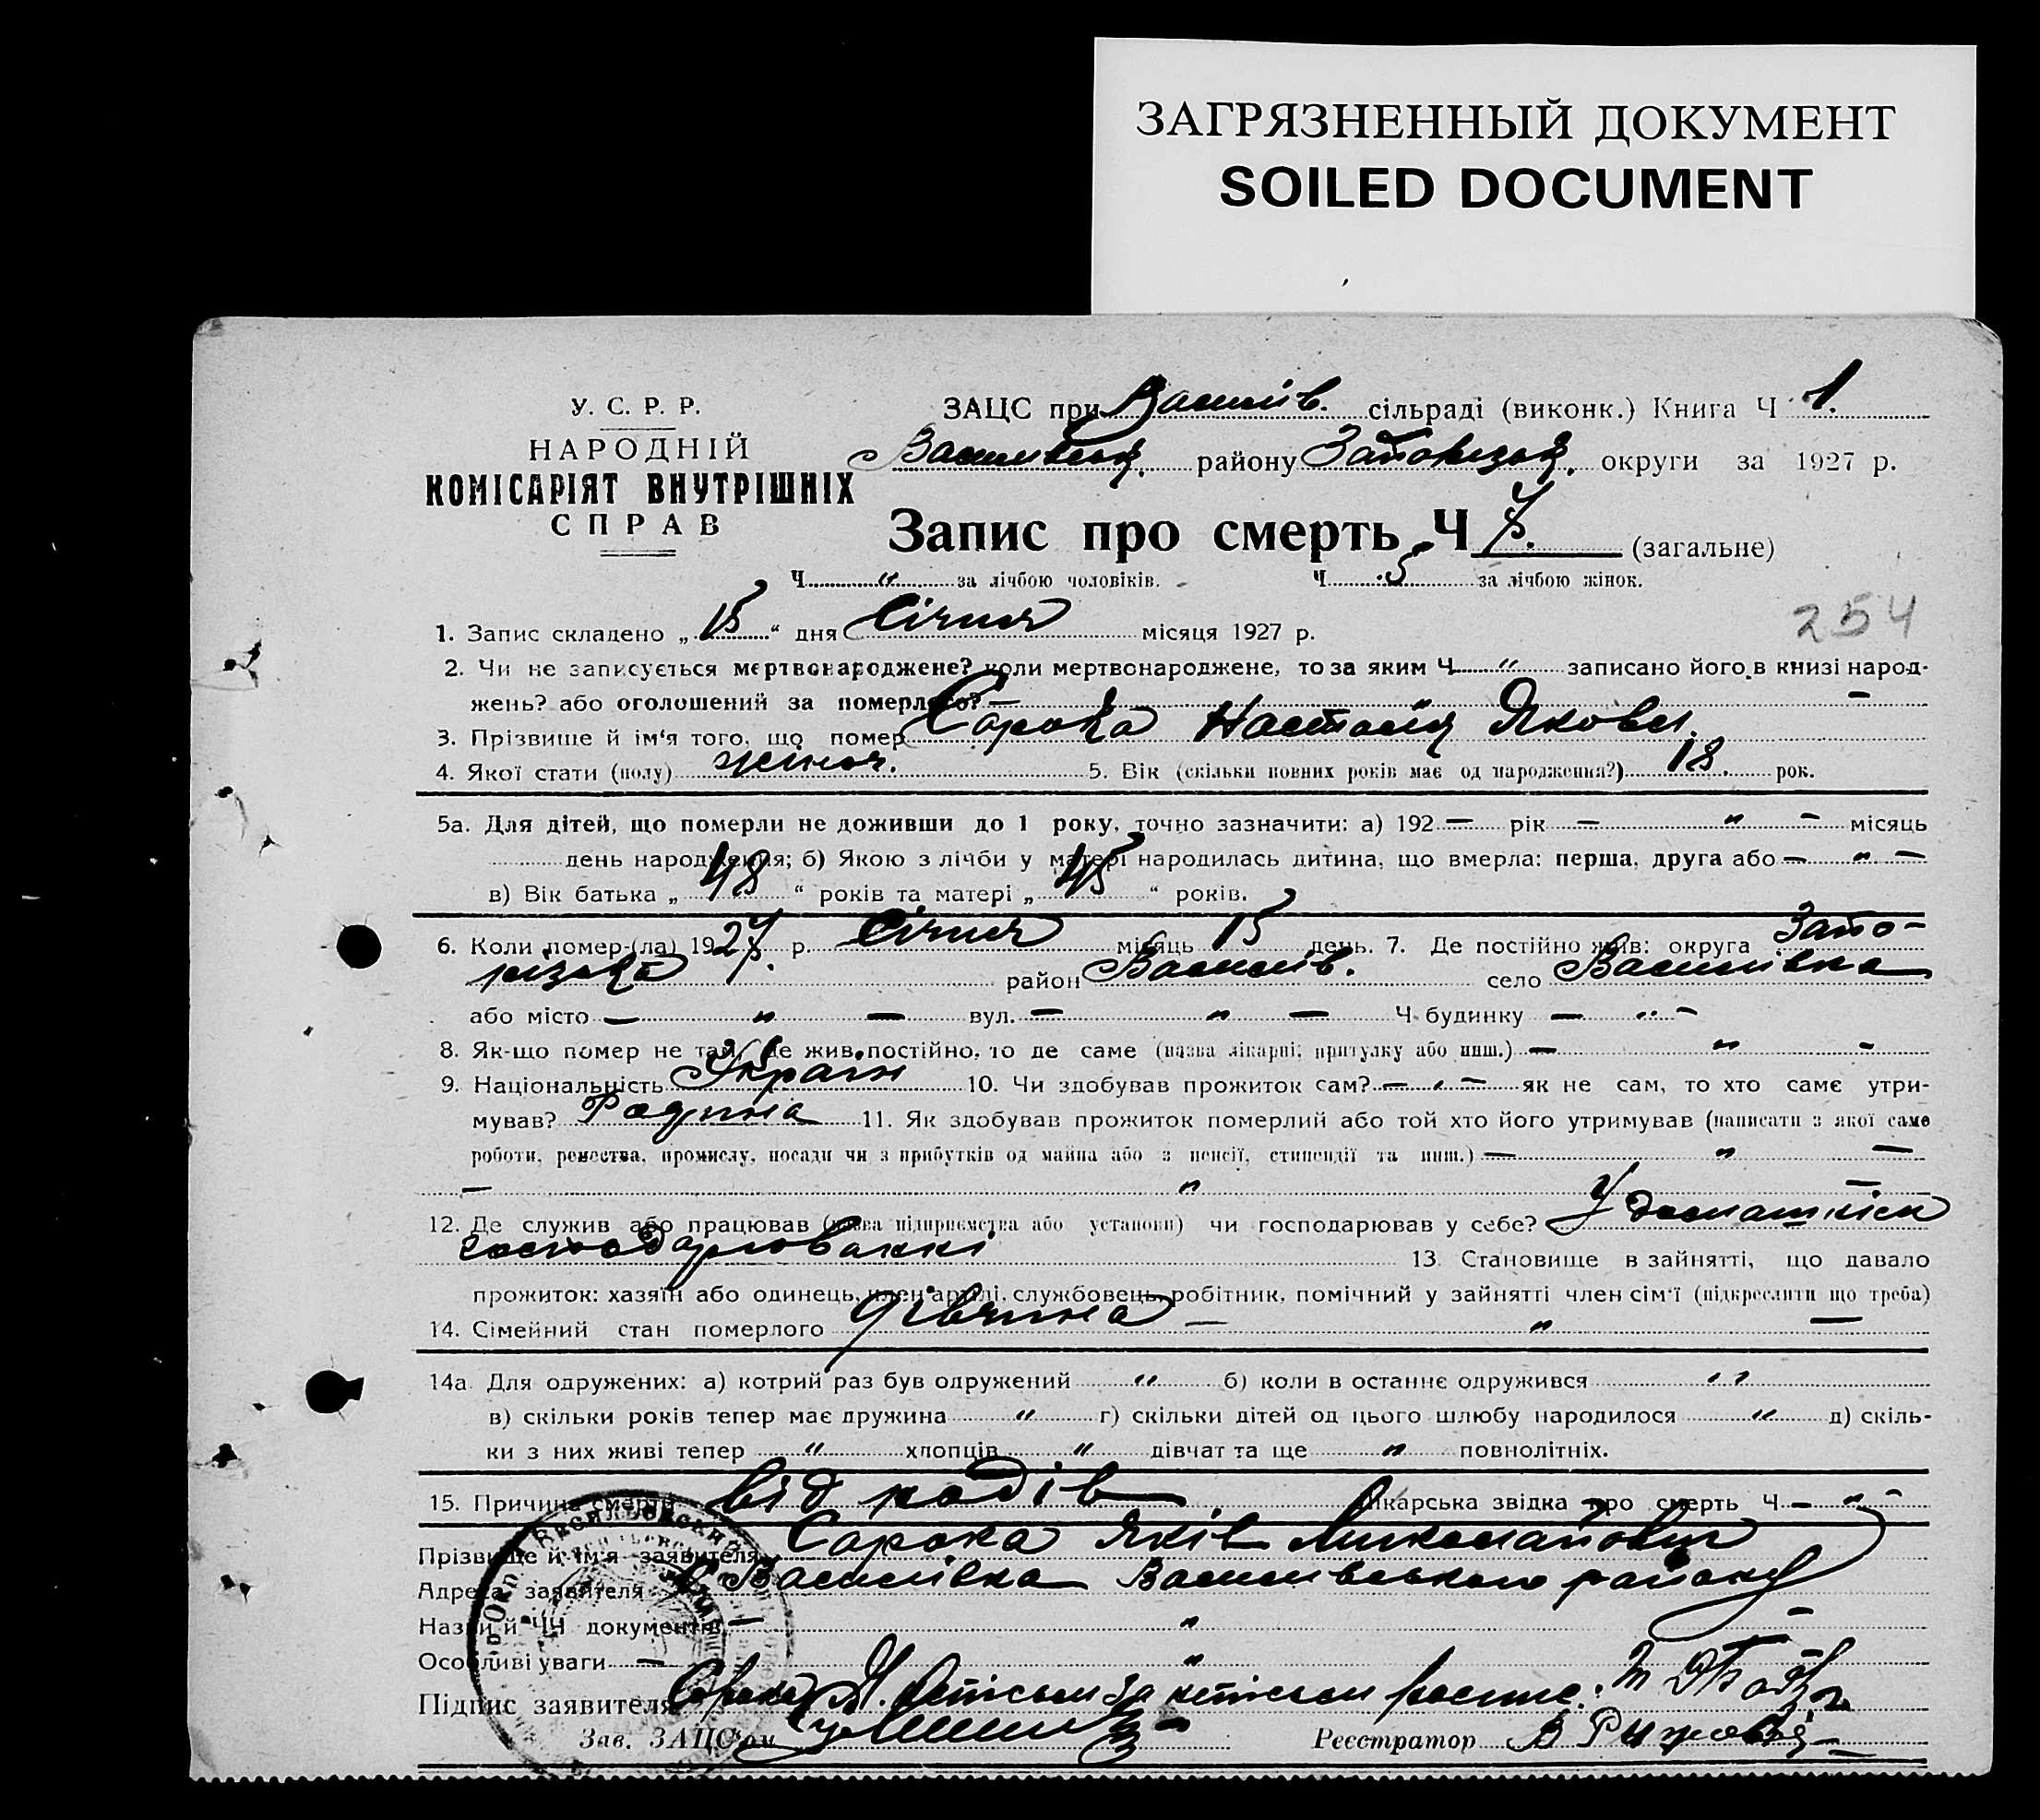 ЗАГРЯЗНЕННЫЙ ДОКУМЕНТ
SOILED DOCUMENT
У. С. Р. Р.
НАРОДНІЙ
КОМІСАРІЯТ ВНУТРІШНІХ
СПРАВ
ЗАЦС при Василів. сільраді (виконк.) Книга Ч 1.
Василівськ. району Запорізьк. округи за 1927 р.
Запис про смерть Ч (загальне)
Ч " за лічбою чоловіків. Ч 5 за лічбою жінок.
254
1. Запис складено „ 15 “ дня Січня місяця 1927 р.
2. Чи не записується мертвонароджене? коли мертвонароджене, то за яким Ч " записано його в книзі народ-
жень? або оголошений за померлого? — —
3. Прізвище й ім‘я того, що помер Сорока Настасія Яковл.
4. Якої стати (полу) жіноч. 5. Вік (скільки повних років має од народження?) 18 рок.
5а. Для дітей, що померли не доживши до 1 року, точно зазначити: а) 192 — рік — " — місяць
день народження; б) Якою з лічби у матері народилась дитина, що вмерла: перша, друга або — " —
в) Вік батька „ 48 “ років та матері „ 45 “ років.
6. Коли помер-(ла) 1927 р. Січня місяць 15 день. 7. Де постійно жив: округа Запо-
різька район Василів. село Василівка
або місто — " — вул. — " — Ч будинку — " —
8. Як-що помер не там, де жив постійно, то де саме (назва лікарні, притулку або инш.) — " —
9. Національність Україн 10. Чи здобував прожиток сам? — " — як не сам, то хто саме утри-
мував? Родина 11. Як здобував прожиток померлий або той хто його утримував (написати з якої саме
роботи, ремества, промислу, посади чи з прибутків од майна або з пенсії, стипендії та инш.) — " —
— " —
12. Де служив або працював (назва підприємства або установи) чи господарював у себе? У домашнім
господарюванні 13. Становище в зайнятті, що давало
прожиток: хазяїн або одинець, член артілі, службовець, робітник, помічний у зайнятті член сім‘ї (підкреслити що треба)
14. Сімейний стан померлого дівчина — " —
14а. Для одружених: а) котрий раз був одружений " б) коли в останнє одружився "
в) скільки років тепер має дружина " г) скільки дітей од цього шлюбу народилося " д) скіль-
ки з них живі тепер " хлопців " дівчат та ще " повнолітніх.
15. Причина смерти від родів Лікарська звідка про смерть Ч — " —
Прізвище й ім‘я заявителя Сорока Яків Миколайович
Адреса заявителя Василівка Василівського району
Назви й ЧЧ документів — " —
Особливі уваги — "
Підпис заявителя Сорока
Зав. ЗАЦС‘ом Реєстратор В Рижова